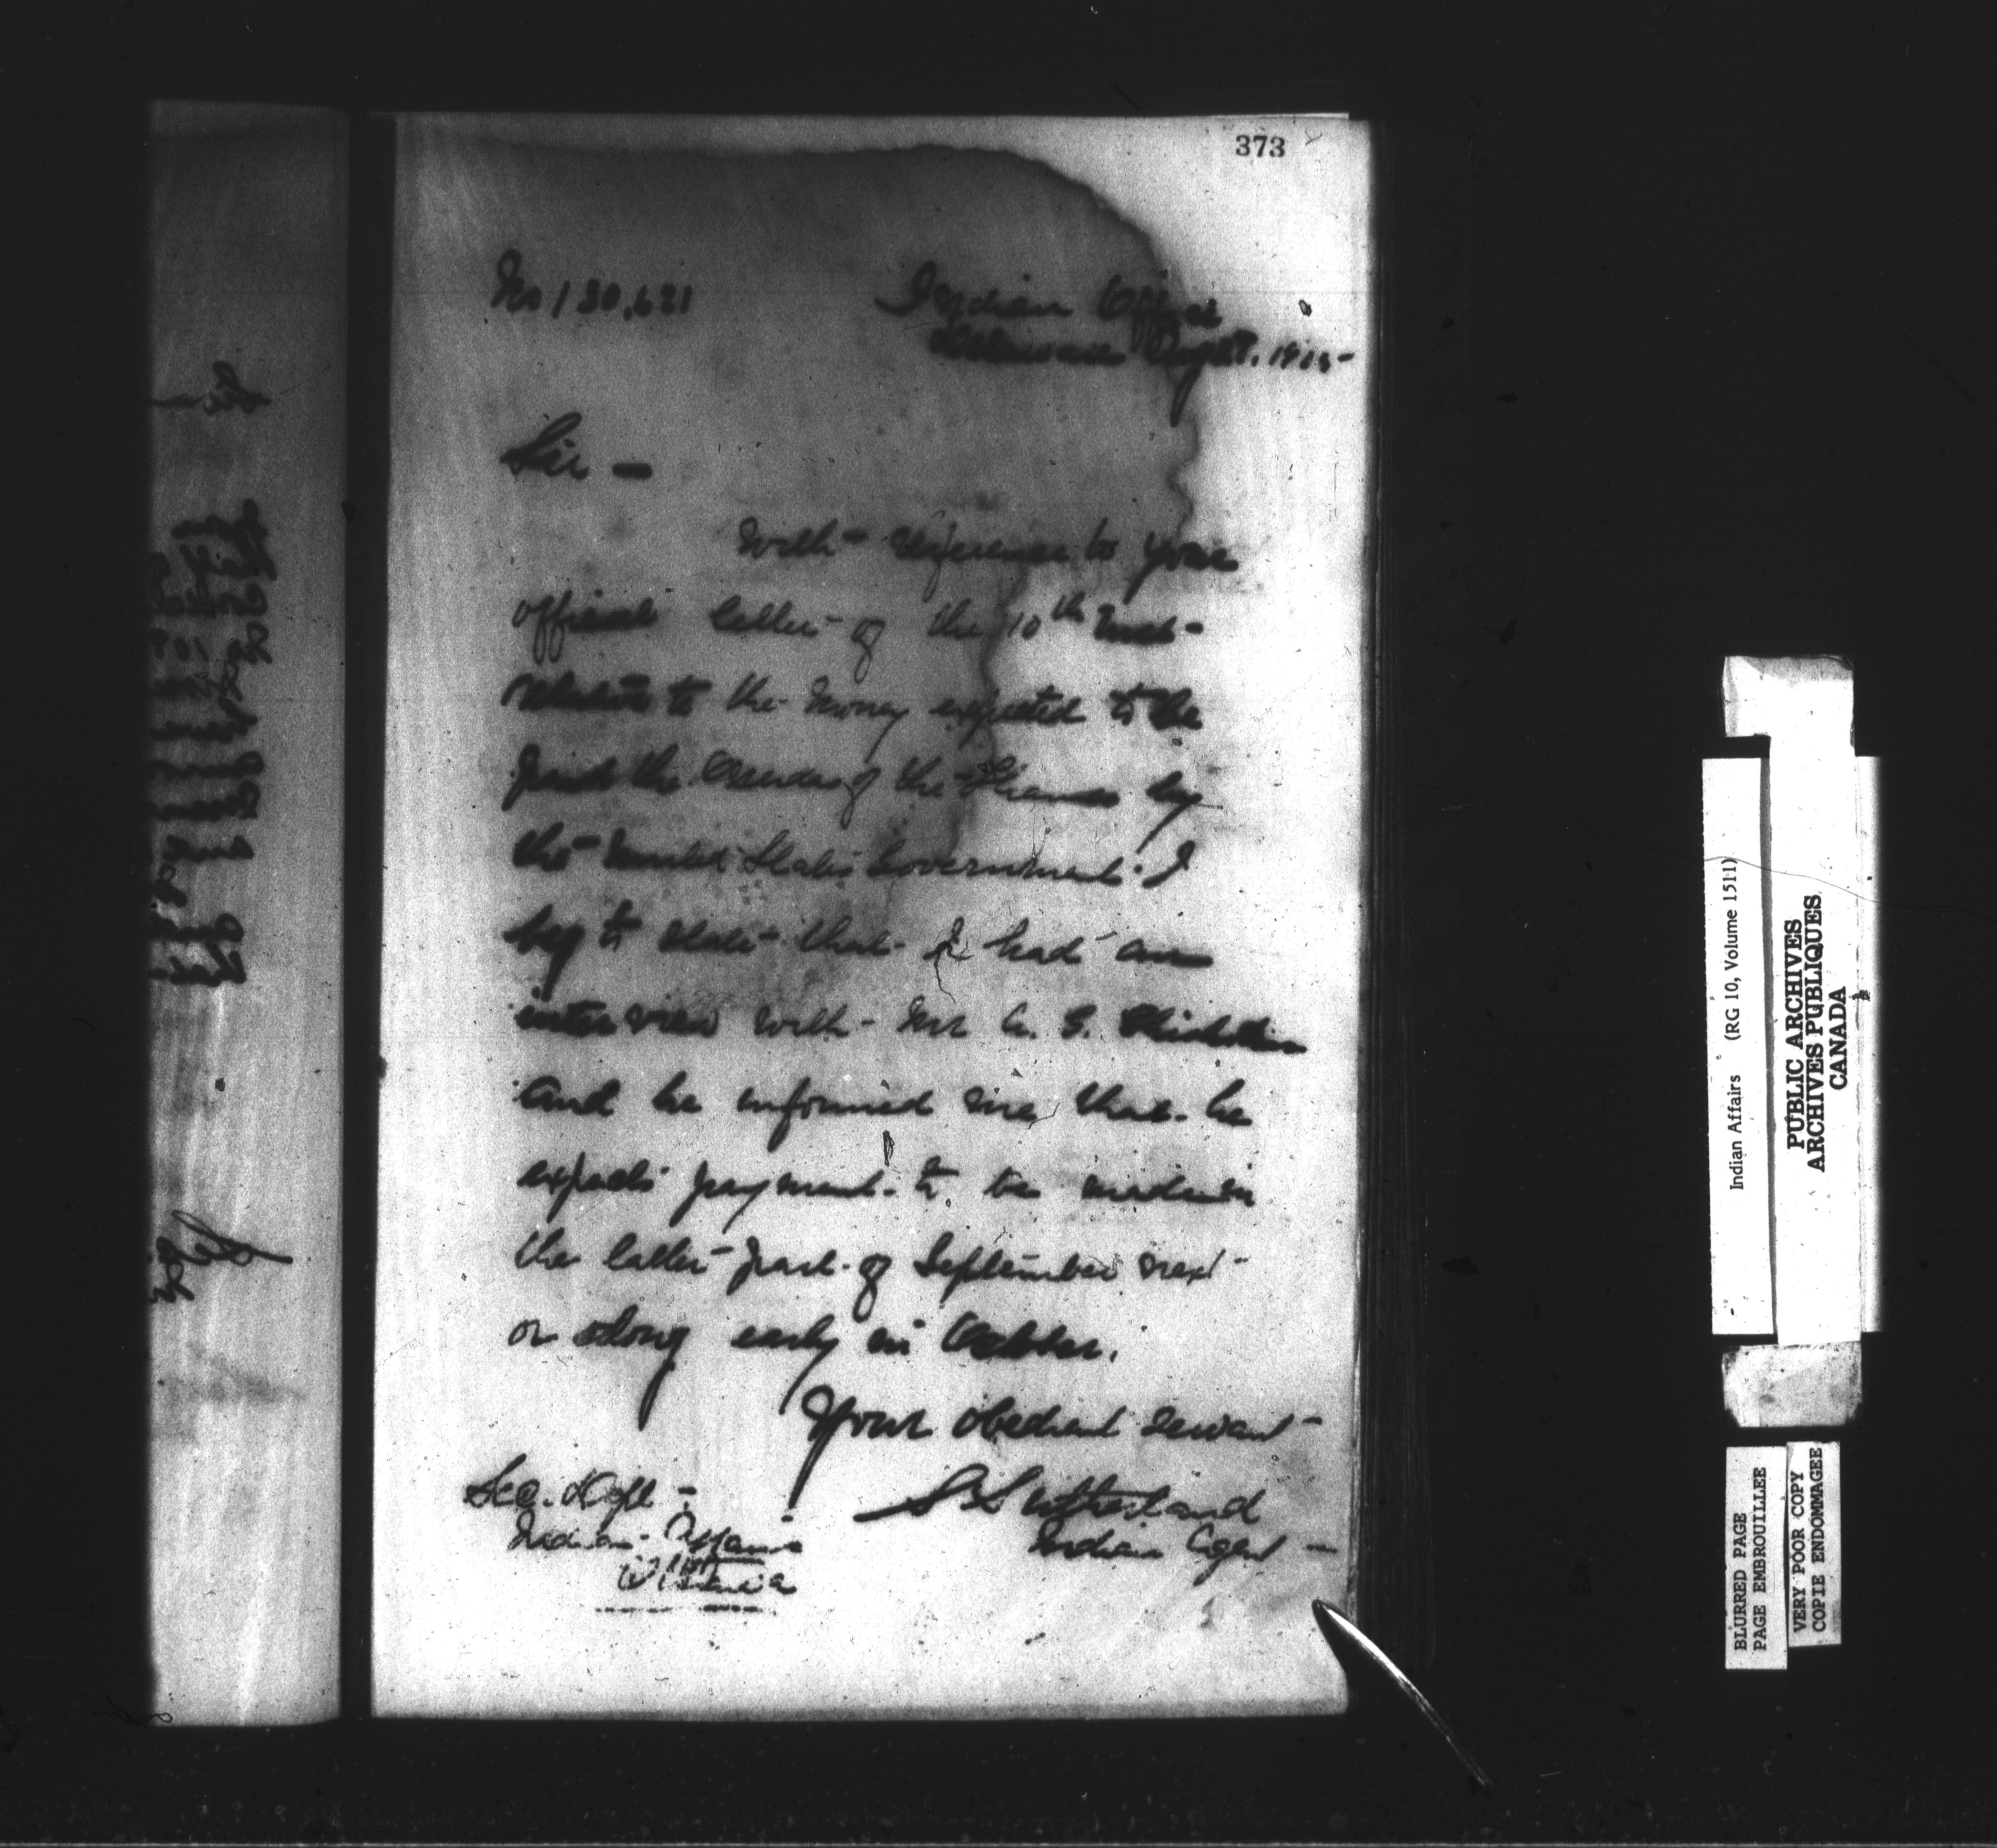 373
No 130,621
Indian Office
Delaware Augst. 1905-
Sir —
With reference to your
official letter of the 10th Inst-
relative to the money expected to be
paid the Oneidas of the Thames by
the United States Government. I
beg to state that I had an
interview with Mr A. G. Chisholm
and he informed me that he
expects payment to be made in
the latter part of September next
or along early in October.
Your obedient servant
S Sutherland
Indian Agent —
Sec. Dept -
Indian Affairs
Ottawa
Indian Affairs (RG 10, Volume 1511)
PUBLIC ARCHIVES
ARCHIVES PUBLIQUES
CANADA
BLURRED PAGE
PAGE EMBROUILLEE
VERY POOR COPY
COPIE ENDOMMAGEE